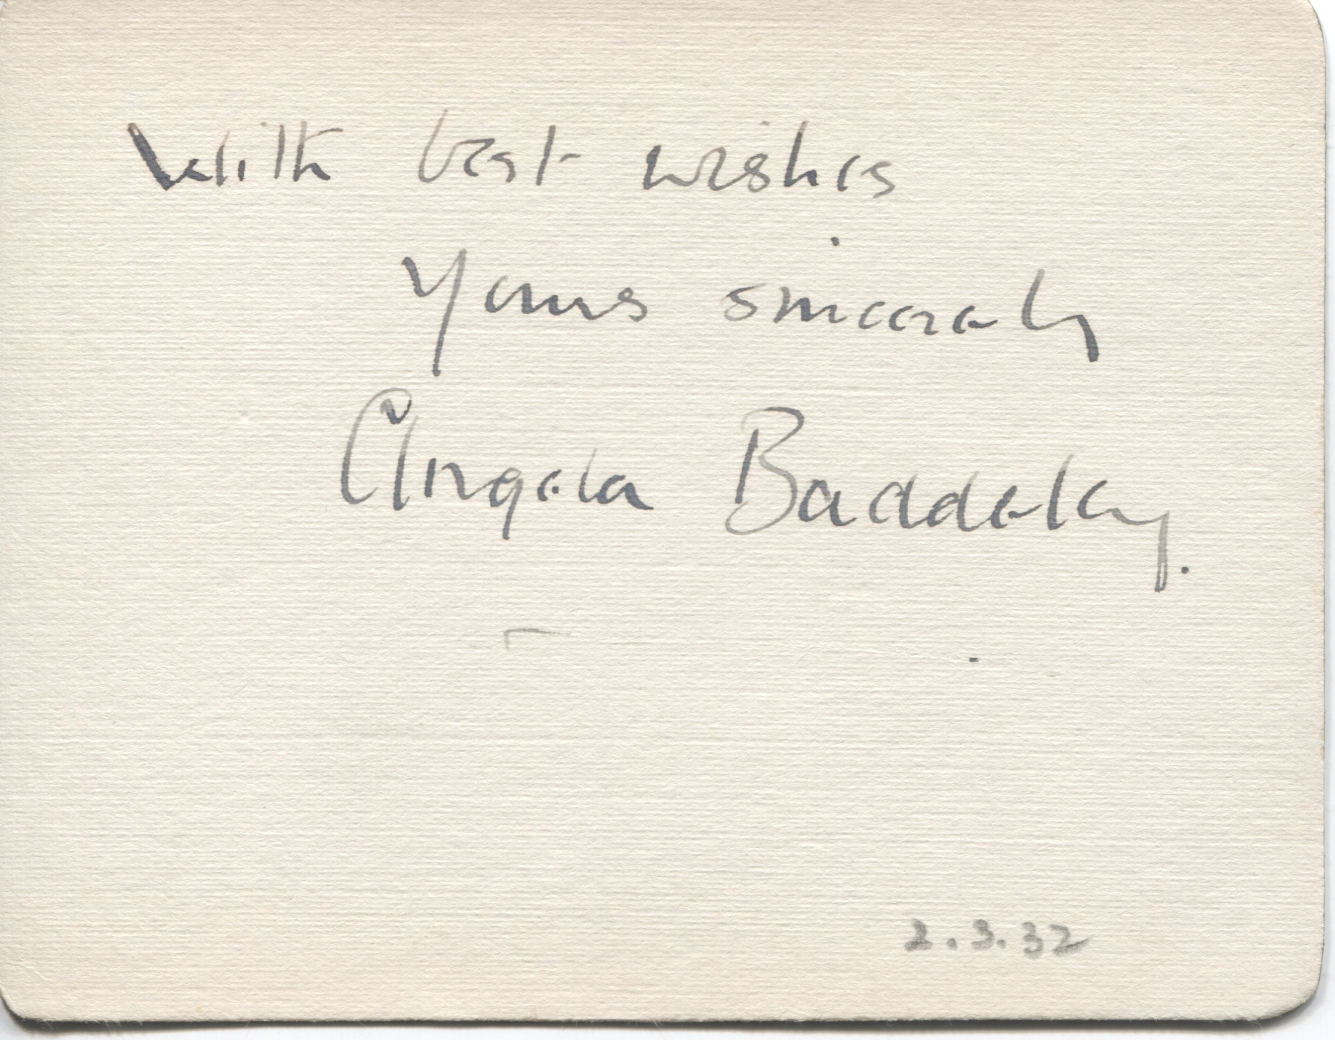 With best wishes
Yours sincerely
Angela Baddeley.
2.3.32